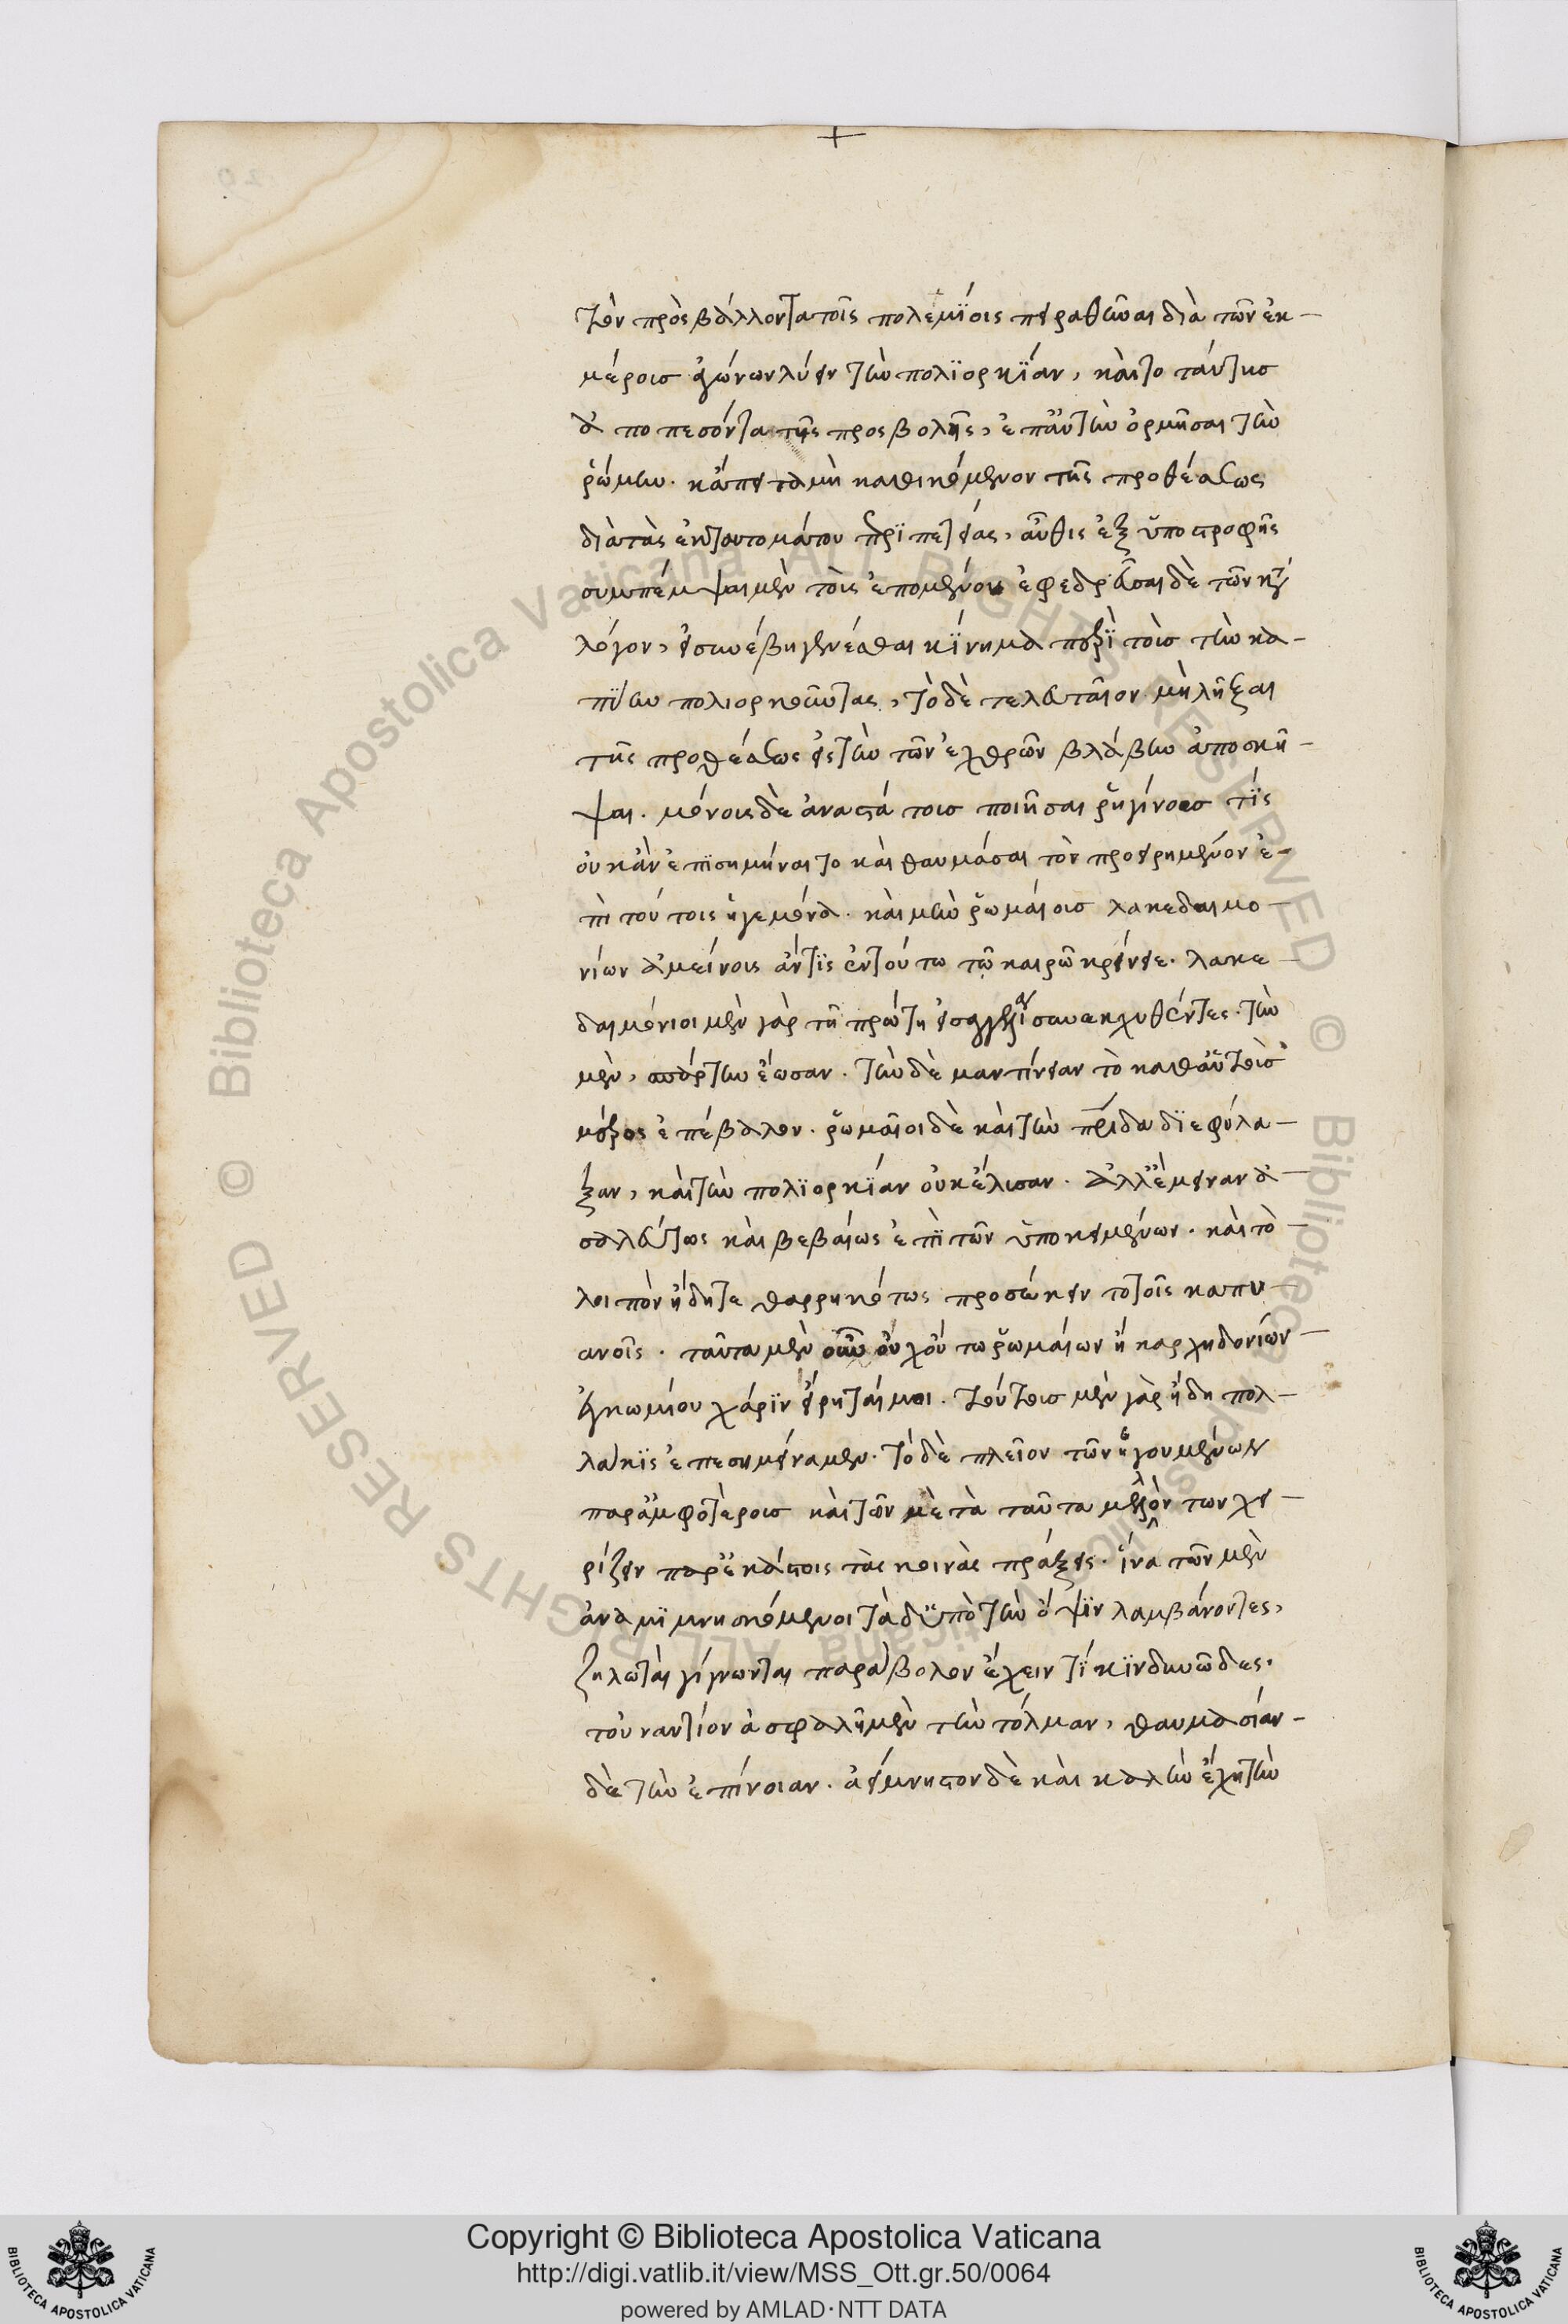 τὸν πρὸς βάλλοντα τοῖς πολεμΐοις πειραθῆναι διὰ τῶν ἐκ-
μέρους ἀγώνων λύειν τὴν πολϊορκΐαν, καὶ το ταύτης
ἀ ποπεσόντα τῆς προσβολῆς, ἐπ' αὐτὴν ὁρμῆσαι τὴν
ῥώμην. κἄπειτα μὴ καθικόμενον τῆς προθέσεως
διὰ τὰς ἐκ ταυτομάτου πὲριπετείας, αὖθις ἐξ ὑποστροφῆς
συμπέμψαι μὲν τοὶς ἑπομένοις ἐφεδρεῦσαι δὲ τῶν κατὰ
λόγον, εἰ συνέβη γενέσθαι κΐνημα περὶ τοὺσ τὴν κα-
πΰην πολιορκοῦντας, τὸ δὲ τελευταῖον μὴ λῆξαι
τῆς προθέσεως εἰς τὴν τῶν ἐχθρῶν βλάβην ἀποσκῆ-
ψαι. μόνους δὲ ἀναστάτουσ ποιῆσαι ῥηγίνουσ τίς
οὐκ ἂν ἐπϊσημήναιτο καὶ θαυμάσαι τὸν προειρημένον ἐ-
πὶ τούτοις ἡγεμόνα. καὶ μὴν ῥωμαίουσ λακεδαιμο-
νίων ἀμείνους ἄντϊς ἐν τούτω τῷ καιρῷ κρίνειε. λακε-
δαιμόνιοι μὲν γὰρ τῆ πρώτη εἰσαγγελίαι συνεκχυθέντες. τὴν
μὲν, σπάρτην ἔωσαν. τὴν δὲ μαντίνειαν τὸ καθ' αὑτοὺσ
μέρος ἐπέβαλον. ῥωμαῖοι δὲ καὶ τὴν πρίδα δϊεφύλα-
ξαν, καὶ τὴν πολϊορκΐαν οὐκ ἔλυσαν. ἀλλ' ἔμειναν ἀ-
σαλεύτως καὶ βεβαίως ἐπὶ τῶν ὑποκειμένων. καὶ τὸ
λοιπὸν ἤδητε θαρρηκότως προσώκειν το τοῖς καπυ-
ανοῖς. ταῦτα μὲν οὖν οὐχ οὕτω ῥωμαίων ἢ καρχηδονίων
ἐγκωμίου χάρϊν εἴρηταί μοι. τούτουσ μὲν γὰρ ἤδη πολ-
λάκϊς ἐπεσημεινάμεν. τὸ δὲ πλεῖον τῶν ἡγουμένων
παρ' ἀμφοτέροισ καὶ τῶν μὲτὰ ταῦτα μελλόντων χει-
ρίζειν παρ' ἑκάστοις τὰς κοινὰς πράξεις. ἵνα τῶν μὲν
ἀναμϊμνησκόμενοι τὰ δ' ὑπὸ τὴν ὄψϊν λαμβάνοντες,
ζηλωταὶ γίγνωνται παράβολον ἔχειν τί κϊνδυνῶδες.
τοὐναντίον ἀσφαλῆ μὲν τὴν τόλμαν, θαυμασίαν-
δὲ τὴν ἐπίνοιαν. ἀείμνηστον δὲ καὶ καλὴν ἔχη τὴν
Copyright © Biblioteca Apostolica Vaticana
http://digi.vatlib.it/view/MSS_Ott.gr.50/0064
powered by AMLAD·NTT DATA